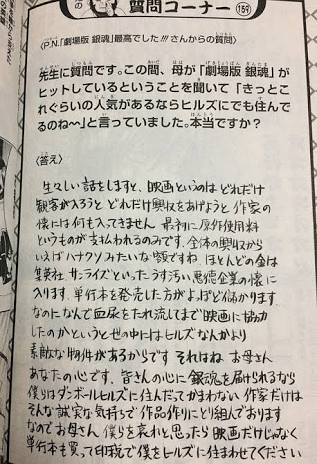 の
質問コーナー
159
〈P.N.「劇場版 銀魂」最高でした!!!さんからの質問〉
先生に質問です。この間、母が「劇場版 銀魂」が
ヒットしているということを聞いて「きっとこ
れぐらいの人気があるならヒルズにでも住んで
るのね〜」と言っていました。本当ですか?
〈答え〉
生々しい話をしますと、映画というのは どれだけ
観客が入ろうと どれだけ興収をあげようと 作家の
懐には何も入ってきません 最初に原作使用料
というものが支払われるのみです。全体の興収から
いえばハナクソみたいな額ですね ほとんどの金は
集英社、サンライズといったうす汚い悪徳企業の懐に
入ります。単行本を発売した方がよっぽど儲かります。
なのになんで血尿をたれ流してまで映画に協力
したのかというと世の中にはヒルズなんかより
素敵な物件があるからです それはね お母さん
あなたの心です。皆さんの心に銀魂を届けられるなら
僕らはダンボールヒルズに住んだってかまわない 作家だけは
そんな誠実な気持ちで作品作りにとり組んでおります
なのでお母さん 僕らを哀れと思ったら映画だけじゃなく
単行本も買って印税で僕をヒルズに住まわせてください